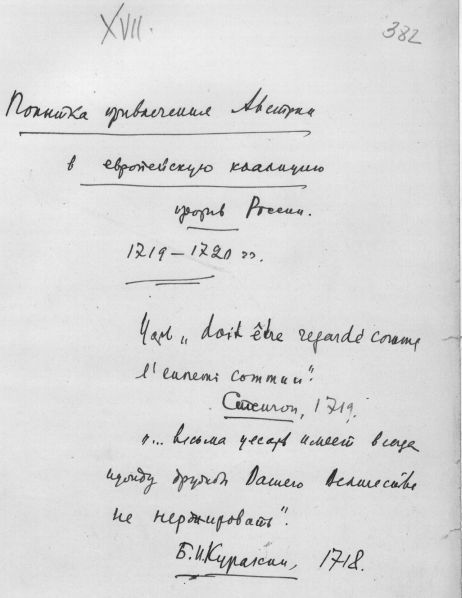 XVII.
382
Попытка привлечения Австрии
в европейскую коалицию
против России.
1719 – 1720 гг.
Царь „doit être regardé comme
l'ennemi commun".
1719.
„... весьма цесарь имеет всегда
дружбой Вашего Величества
не
Б.И.Куракин, 1718.